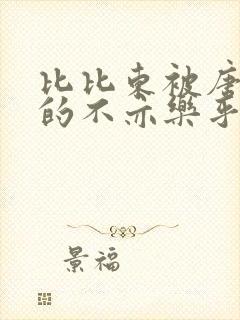 比比东被唐
的不亦乐乎
景福